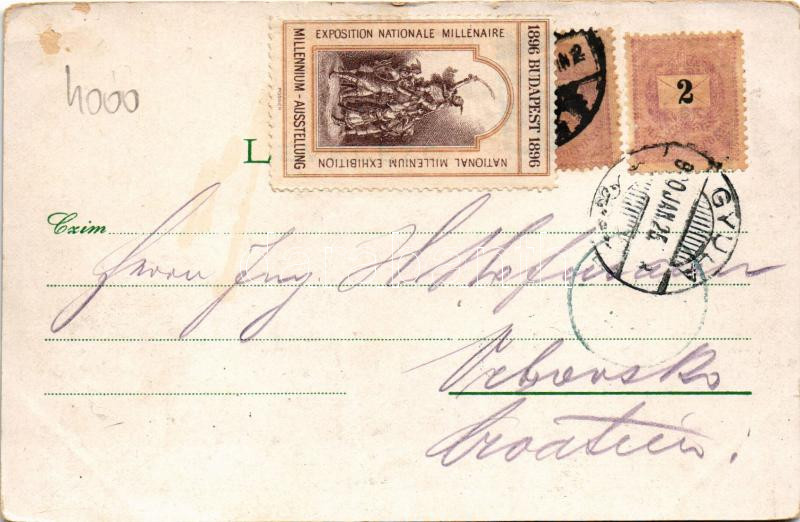 4000
EXPOSITION NATIONALE MILLÉNAIRE
MILLENNIUM - AUSSTELLUNG
NATIONAL MILLENIUM EXHIBITION
1896 BUDAPEST 1896
2
L
GYULA
900 JAN. 26
Czim
Herrn Ing H. Hofmann
Vrbovsko
Croatien!